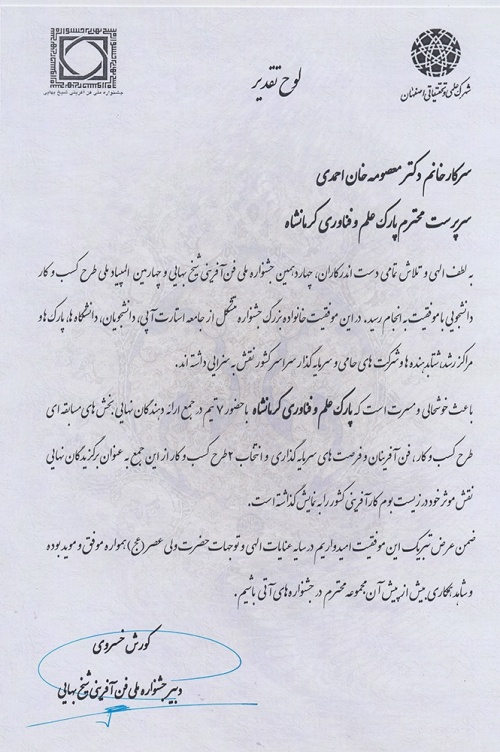 جشنواره ملی فن آفرینی شیخ بهایی
شهرک علمی و تحقیقاتی اصفهان
لوح تقدیر
سرکار خانم دکتر معصومه خان احمدی
سرپرست محترم پارک علم و فناوری کرمانشاه
به لطف الهی و تلاش تمامی دست اندرکاران، چهاردهمین جشنواره ملی فن آفرینی شیخ بهایی و چهارمین المپیاد ملی طرح کسب و کار
دانشجویی با موفقیت به انجام رسید. در این موفقیت خانواده بزرگ جشنواره متشکل از جامعه استارت آپی، دانشجویان، دانشگاه ها، پارک ها و
مراکز رشد، شتابدهنده ها و شرکت های حامی و سرمایه گذار سراسر کشور نقش به سزایی داشته اند.
باعث خوشحالی و مسرت است که پارک علم و فناوری کرمانشاه با حضور ۷ تیم در جمع ارائه دهندگان نهایی بخش های مسابقه ای
طرح کسب و کار، فن آفرینان و فرصت های سرمایه گذاری و انتخاب ۲ طرح کسب و کار از این جمع به عنوان برگزیدگان نهایی
نقش موثر خود در زیست بوم کارآفرینی کشور را به نمایش گذاشته است.
ضمن عرض تبریک این موفقیت امیدواریم در سایه عنایات الهی و توجهات حضرت ولی عصر (عج) همواره موفق و موید بوده
و شاهد همکاری بیش از پیش آن مجموعه محترم در جشنواره های آتی باشیم.
کورش خسروی
دبیر جشنواره ملی فن آفرینی شیخ بهایی